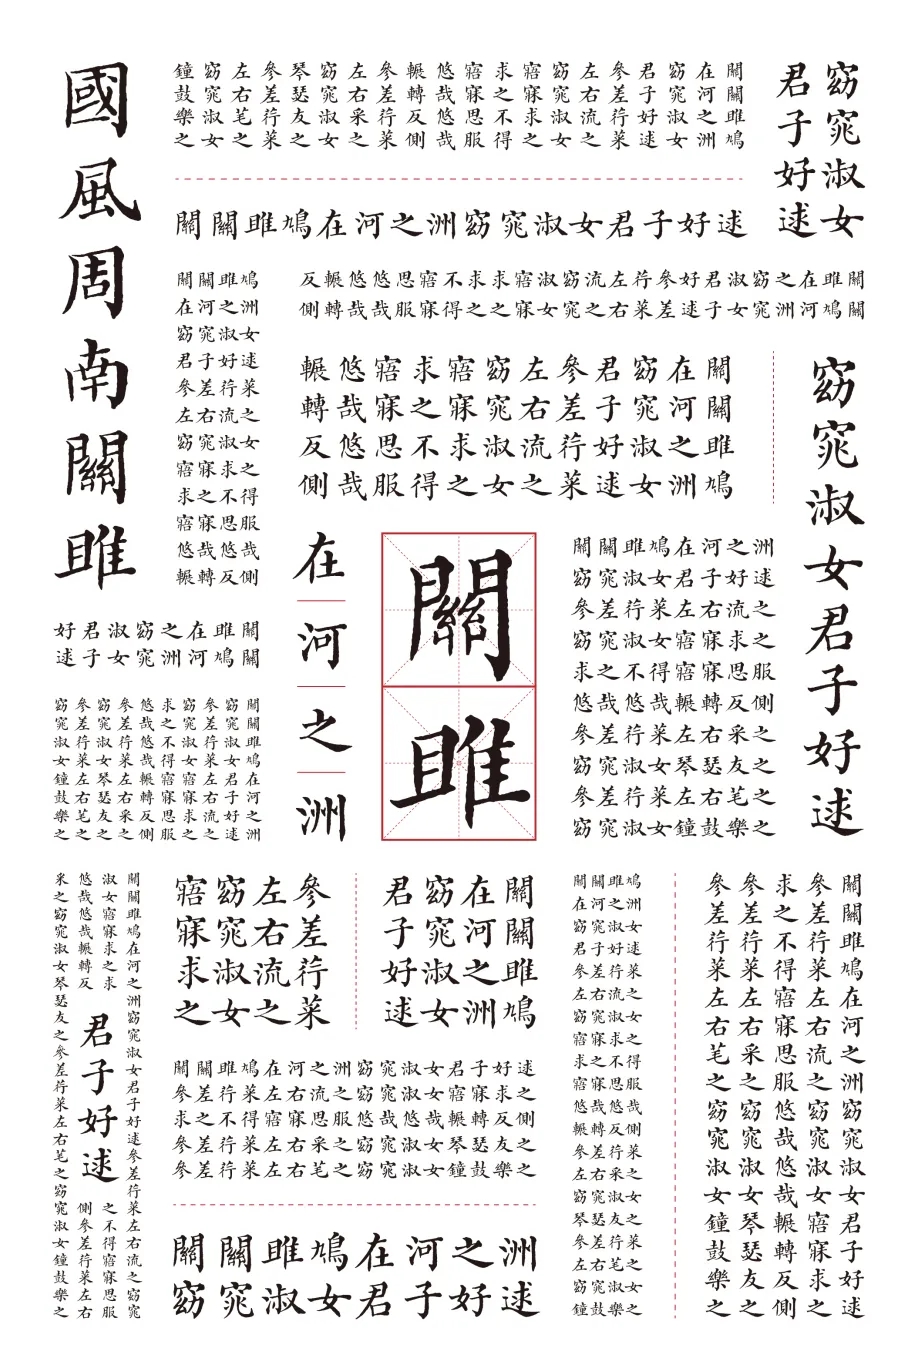 國風周南關雎
關關雎鳩
在河之洲
窈窕淑女
君子好逑
參差荇菜
左右流之
窈窕淑女
寤寐求之
求之不得
寤寐思服
悠哉悠哉
輾轉反側
參差荇菜
左右采之
窈窕淑女
琴瑟友之
參差荇菜
左右芼之
窈窕淑女
鐘鼓樂之
窈窕淑女
君子好逑
關關雎鳩在河之洲窈窕淑女君子好逑
關關雎鳩
在河之洲
窈窕淑女
君子好逑
參差荇菜
左右流之
窈窕淑女
寤寐求之
求之不得
寤寐思服
悠哉悠哉
輾轉反側
關關
雎鳩
在河
之洲
窈窕
淑女
君子
好逑
參差
荇菜
左右
流之
窈窕
淑女
寤寐
求之
求之
不得
寤寐
思服
悠哉
悠哉
輾轉
反側
關關雎鳩
在河之洲
窈窕淑女
君子好逑
參差荇菜
左右流之
窈窕淑女
寤寐求之
求之不得
寤寐思服
悠哉悠哉
輾轉反側
窈窕淑女君子好逑
在河之洲
關雎
關關雎鳩在河之洲
窈窕淑女君子好逑
參差荇菜左右流之
窈窕淑女寤寐求之
求之不得寤寐思服
悠哉悠哉輾轉反側
參差荇菜左右采之
窈窕淑女琴瑟友之
參差荇菜左右芼之
窈窕淑女鐘鼓樂之
關關
雎鳩
在河
之洲
窈窕
淑女
君子
好逑
關關雎鳩在河之洲
窈窕淑女君子好逑
參差荇菜左右流之
窈窕淑女寤寐求之
求之不得寤寐思服
悠哉悠哉輾轉反側
參差荇菜左右采之
窈窕淑女琴瑟友之
參差荇菜左右芼之
窈窕淑女鐘鼓樂之
關關雎鳩在河之洲窈窕淑女君子好逑參差荇菜左右流之窈窕
淑女寤寐求之求
之不得寤寐思服
悠哉悠哉輾轉反
側參差荇菜左右
采之窈窕淑女琴瑟友之參差荇菜左右芼之窈窕淑女鐘鼓樂之
君子好逑
參差荇菜
左右流之
窈窕淑女
寤寐求之
關關雎鳩
在河之洲
窈窕淑女
君子好逑
關關雎鳩在河之洲窈窕淑女君子好逑
參差荇菜左右流之窈窕淑女寤寐求之
求之不得寤寐思服悠哉悠哉輾轉反側
參差荇菜左右采之窈窕淑女琴瑟友之
參差荇菜左右芼之窈窕淑女鐘鼓樂之
關關雎鳩在河之洲
窈窕淑女君子好逑
關關雎鳩
在河之洲
窈窕淑女
君子好逑
參差荇菜
左右流之
窈窕淑女
寤寐求之
求之不得
寤寐思服
悠哉悠哉
輾轉反側
參差荇菜
左右采之
窈窕淑女
琴瑟友之
參差荇菜
左右芼之
窈窕淑女
鐘鼓樂之
關關雎鳩在河之洲窈窕淑女君子好逑
參差荇菜左右流之窈窕淑女寤寐求之
求之不得寤寐思服悠哉悠哉輾轉反側
參差荇菜左右采之窈窕淑女琴瑟友之
參差荇菜左右芼之窈窕淑女鐘鼓樂之